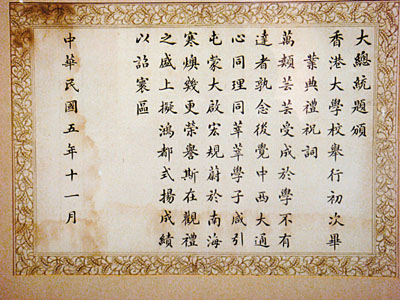 大總統題頒
香港大學校舉行初次畢
業典禮祝詞
萬類芸芸受成於學不有
達者孰念後覺中西大通
心同理同莘莘學子咸引
屯蒙大啟宏規蔚於南海
寒燠幾更榮譽斯在觀禮
之盛上擬鴻都式揚成績
以詒寰區
中華民國五年十一月